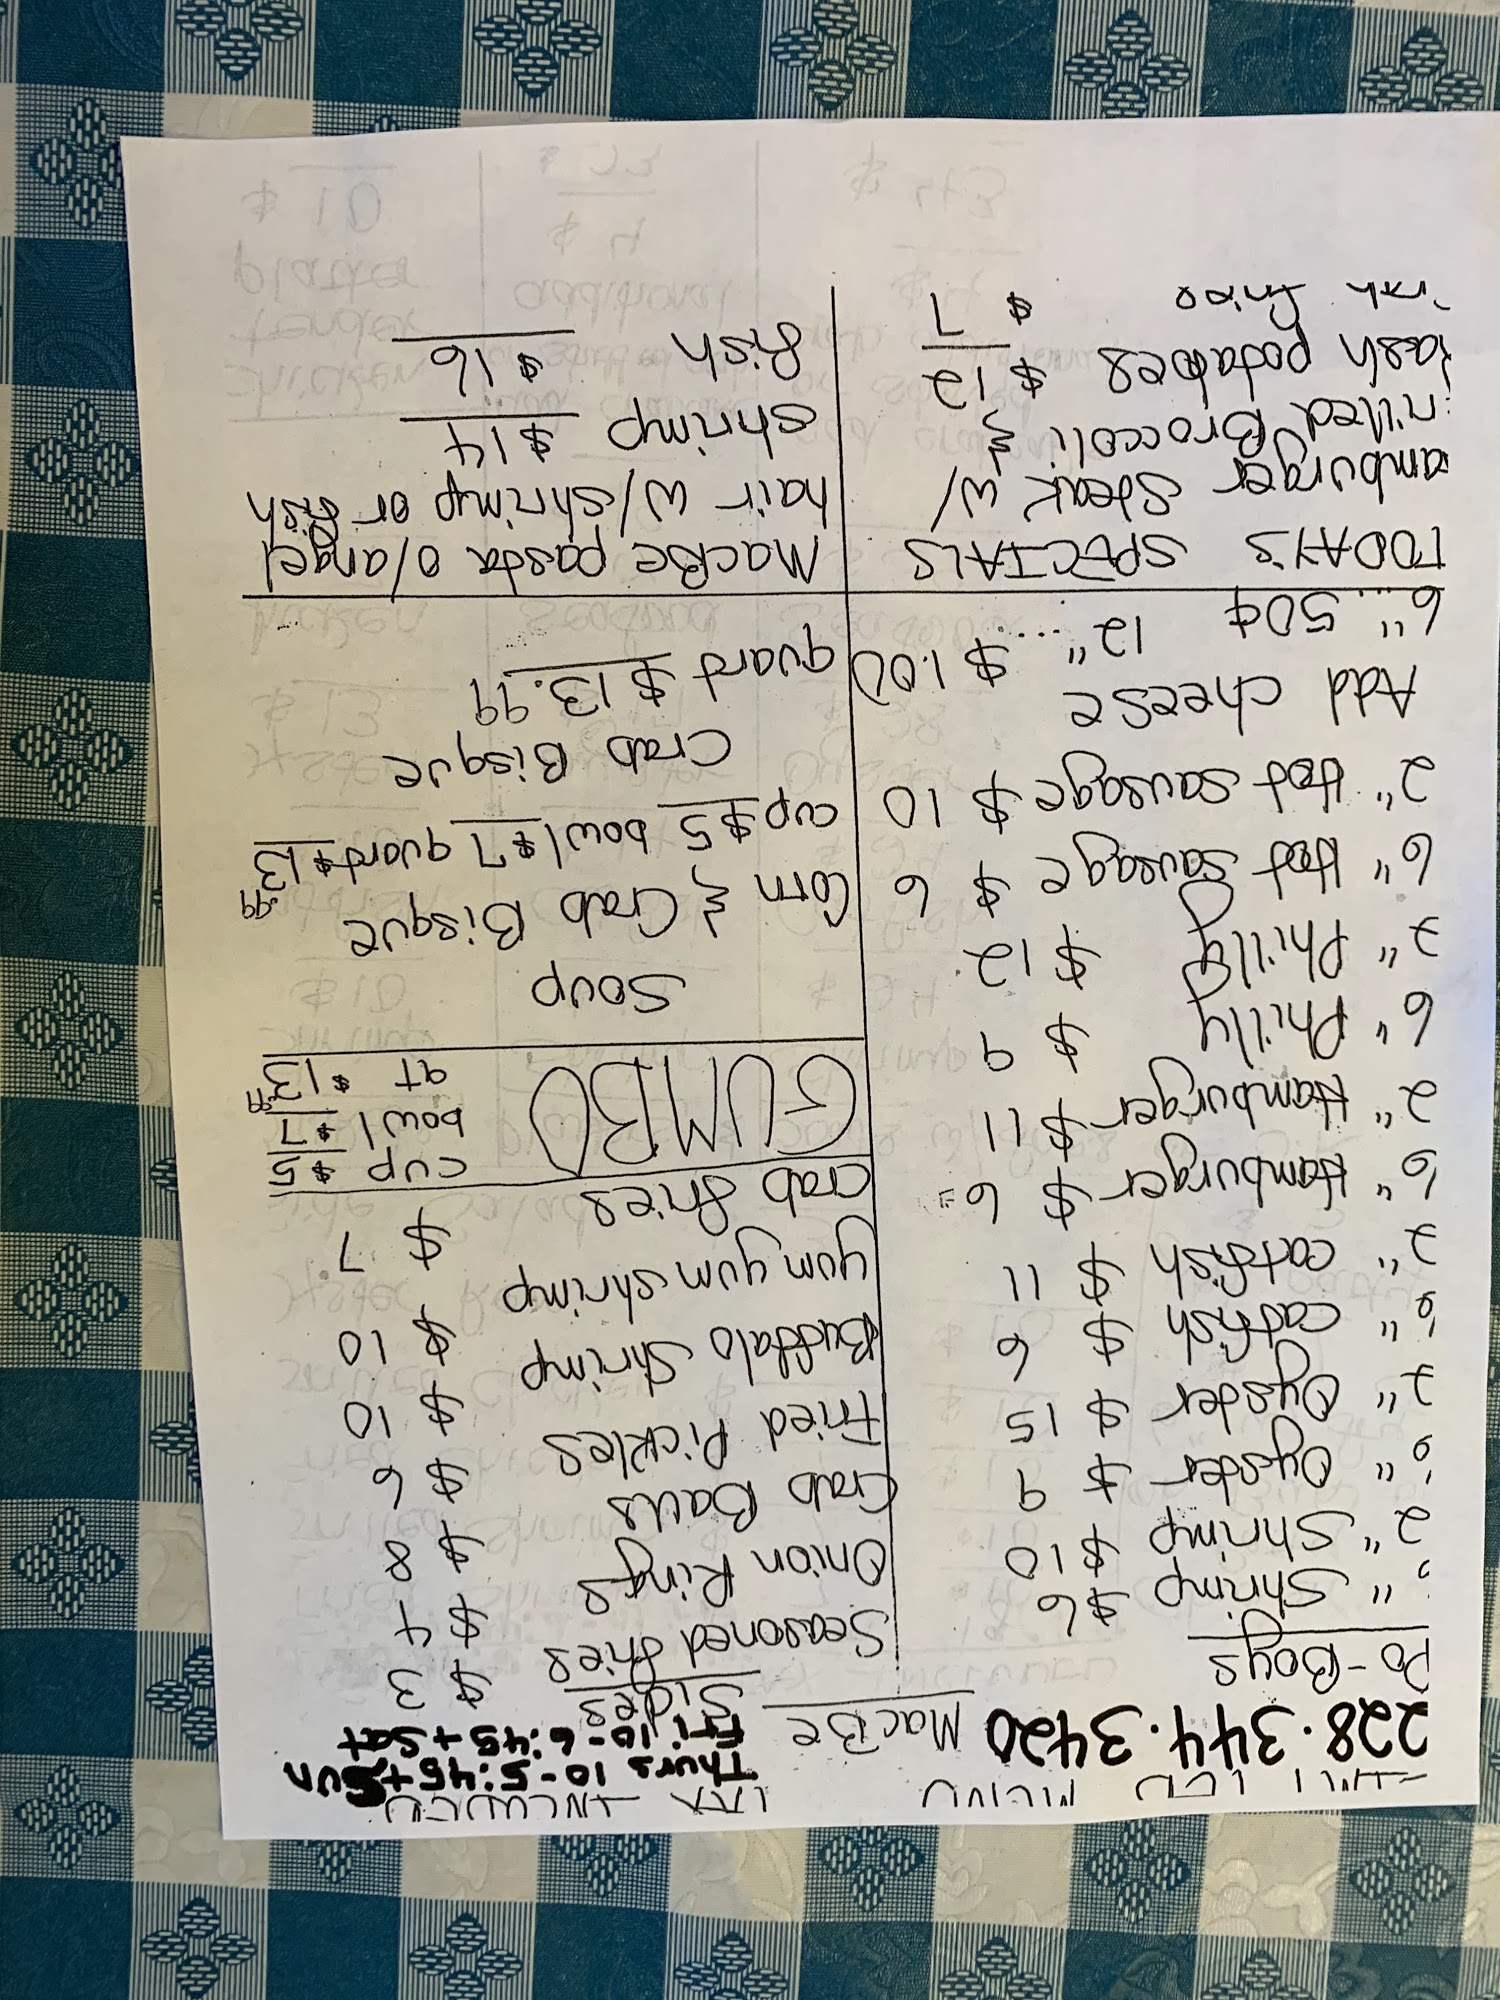 LIMITED MENU TAX INCLUDED
228.344.3420 Thurs 10-5:45 + Sun
Fri 10-6:45 + Sat
MacBe
Po-Boys
" Shrimp $6
2" Shrimp $10
" Oyster $9
2" Oyster $15
" catfish $6
2" catfish $11
6" Hamburger $6
2" Hamburger $11
6" Philly $9
2" Philly $12
6" Hot sausage $6
2" Hot sausage $10
Add cheese
6".... 50¢ 12".... $1.00
Sides
Seasoned fries $3
Onion Rings $4
Crab Balls $8
Fried Pickles $6
Buffalo Shrimp $10
yum yum shrimp $10
crab fries $7
GUMBO
cup $5
bowl $7
qt $13.99
Soup
Corn & Crab Bisque
cup $5 bowl $7 quart $13.99
Crab Bisque
quart $13.99
TODAY'S SPECIALS
amburger Steak w/
Broccoli &
potatoes $12
$7
MacBe pasta o/angel
hair w/shrimp or fish
Shrimp $14
fish $16